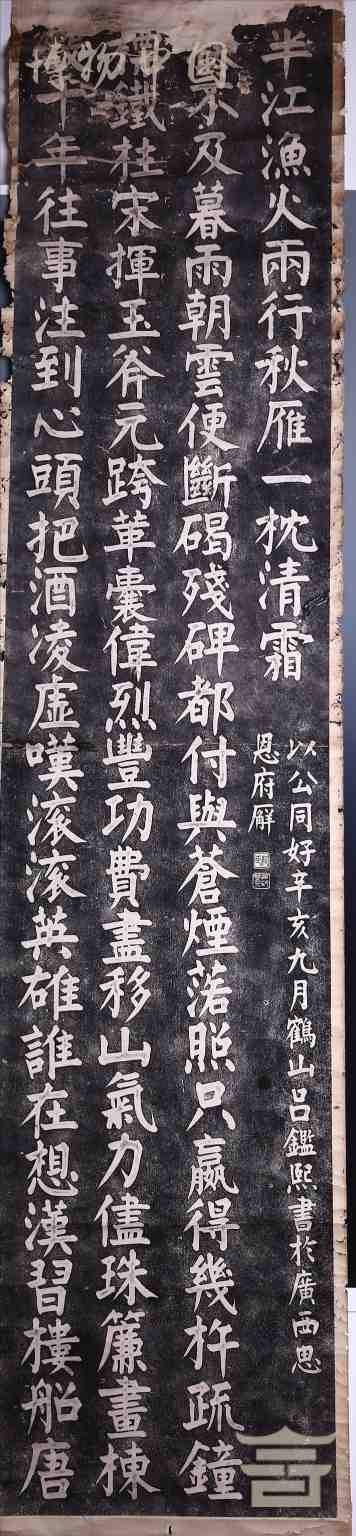 博物
千年往事注到心頭把酒凌虛嘆滚滚英雄誰在想漢習樓船唐
鐵柱宋揮玉斧元跨革囊偉烈豐功費盡移山氣力儘珠簾畫棟
不及暮雨朝雲便斷碣殘碑都付與蒼煙落照只贏得幾杵疏鐘
半江漁火兩行秋雁一枕清霜
以公同好辛亥九月鶴山呂鑑熙書於廣西思
恩府廨